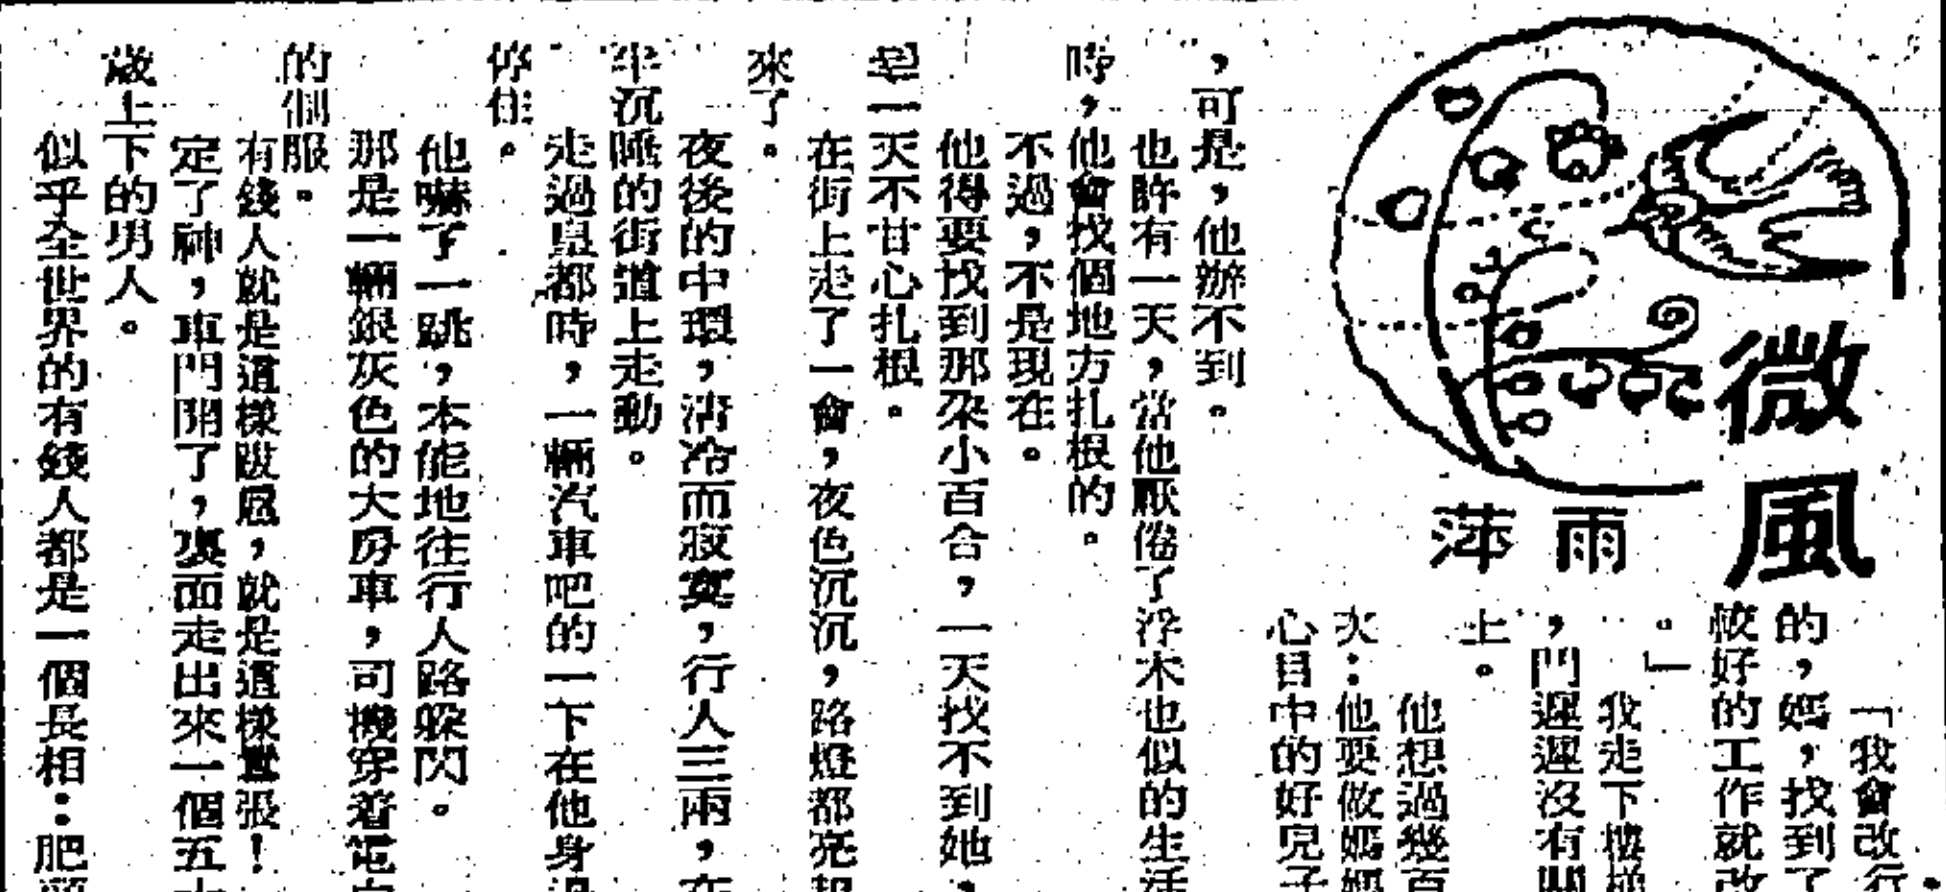 微風
雨萍
「我會改行
的，媽，找到了
較好的工作就改
。」
我走下樓梯
，門遲遲沒有關
上。
他想過幾百
次：他要做媽媽
心目中的好兒子
，可是，他辦不到。
也許有一天，當他厭倦了浮木也似的生活
時，他會找個地方扎根的。
不過，不是現在。
他得要找到那朶小百合，一天找不到她，
是一天不甘心扎根。
在街上走了一會，夜色沉沉，路燈都亮起
來了。
夜後的中環，清冷而寂寞，行人三兩，在
半沉睡的街道上走動。
走過皇都時，一輛汽車吧的一下在他身邊
停住。
他嚇了一跳，本能地往行人路躱閃。
那是一輛銀灰色的大房車，司機穿着
的個服。
有錢人就是這樣跋扈，就是這樣囂張！
定了神，車門開了，裏面走出來一個五十
歲上下的男人。
似乎全世界的有錢人都是一個長相：肥